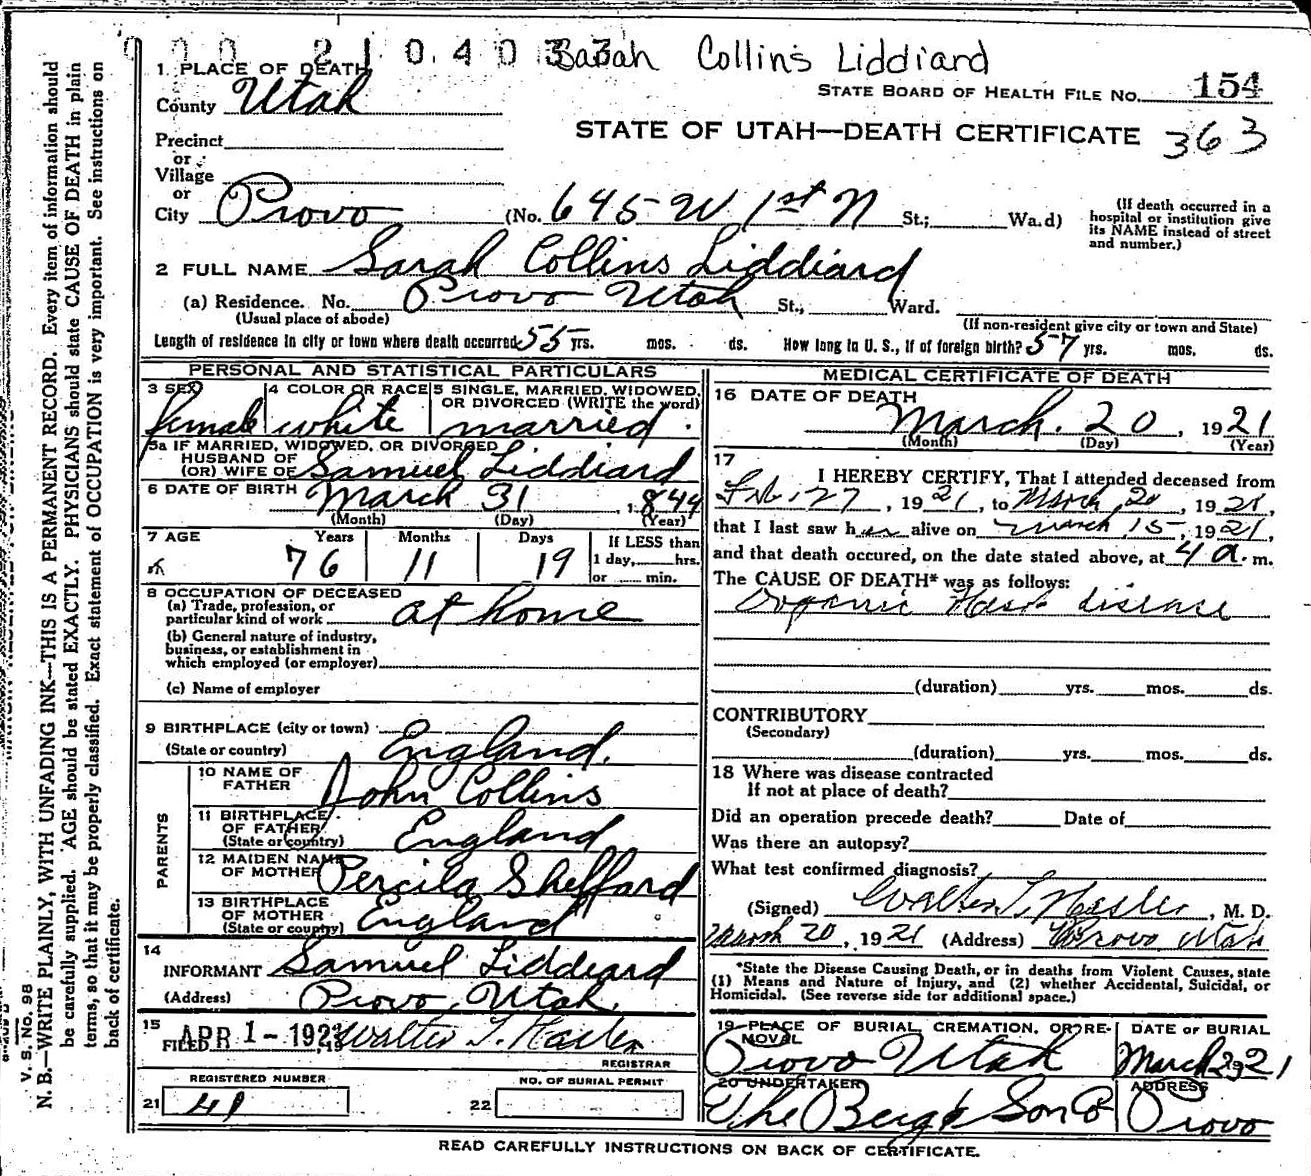 0 0 0 2 1 0 4 0 3 3 Sarah Collins Liddiard
1 PLACE OF DEATH
County Utah
STATE BOARD OF HEALTH FILE NO. 154
STATE OF UTAH—DEATH CERTIFICATE 363
Precinct
or
Village
or
City Provo (No. 645 W 1st N St.; Ward)
(If death occurred in a hospital or institution give its NAME instead of street and number.)
2 FULL NAME Sarah Collins Liddiard
(a) Residence. No. Provo Utah St., Ward.
(Usual place of abode) (If non-resident give city or town and State)
Length of residence in city or town where death occurred 55 yrs. mos. ds. How long in U. S., if of foreign birth? 57 yrs. mos. ds.
PERSONAL AND STATISTICAL PARTICULARS
3 SEX female
4 COLOR OR RACE white
5 SINGLE, MARRIED, WIDOWED, OR DIVORCED (WRITE the word) married
5a IF MARRIED, WIDOWED, OR DIVORCED
HUSBAND OF
(OR) WIFE OF Samuel Liddiard
6 DATE OF BIRTH March 31, 1844
(Month) (Day) (Year)
7 AGE Years Months Days If LESS than
76 11 19 1 day, hrs.
or min.
8 OCCUPATION OF DECEASED
(a) Trade, profession, or
particular kind of work at home
(b) General nature of industry,
business, or establishment in
which employed (or employer)
(c) Name of employer
9 BIRTHPLACE (city or town)
(State or country) England.
PARENTS
10 NAME OF FATHER John Collins
11 BIRTHPLACE OF FATHER (State or country) England
12 MAIDEN NAME OF MOTHER Percila Sheffard
13 BIRTHPLACE OF MOTHER (State or country) England
14
INFORMANT Samuel Liddiard
(Address) Provo, Utah.
15
FILED APR 1 - 1921, 19 Walter T. Hasler
REGISTRAR
REGISTERED NUMBER
21 41
NO. OF BURIAL PERMIT
22
MEDICAL CERTIFICATE OF DEATH
16 DATE OF DEATH
March. 20, 1921
(Month) (Day) (Year)
17
I HEREBY CERTIFY, That I attended deceased from
Feb. 27, 1921, to March 20, 1921,
that I last saw her alive on March 15, 1921,
and that death occured, on the date stated above, at 4 a. m.
The CAUSE OF DEATH* was as follows:
Organic Heart disease
(duration) yrs. mos. ds.
CONTRIBUTORY
(Secondary)
(duration) yrs. mos. ds.
18 Where was disease contracted
If not at place of death?
Did an operation precede death? Date of
Was there an autopsy?
What test confirmed diagnosis?
(Signed) Walter T. Hasler, M. D.
March 20, 1921 (Address) Provo Utah
*State the Disease Causing Death, or in deaths from Violent Causes, state
(1) Means and Nature of Injury, and (2) whether Accidental, Suicidal, or
Homicidal. (See reverse side for additional space.)
19 PLACE OF BURIAL, CREMATION, OR REMOVAL
Provo Utah
DATE OF BURIAL
March 23 21
20 UNDERTAKER
The Berg & Son Co
ADDRESS
Provo
READ CAREFULLY INSTRUCTIONS ON BACK OF CERTIFICATE.
V. S. No. 98
N. B.—WRITE PLAINLY, WITH UNFADING INK—THIS IS A PERMANENT RECORD. Every item of information should
be carefully supplied. AGE should be stated EXACTLY. PHYSICIANS should state CAUSE OF DEATH in plain
terms, so that it may be properly classified. Exact statement of OCCUPATION is very important. See instructions on
back of certificate.